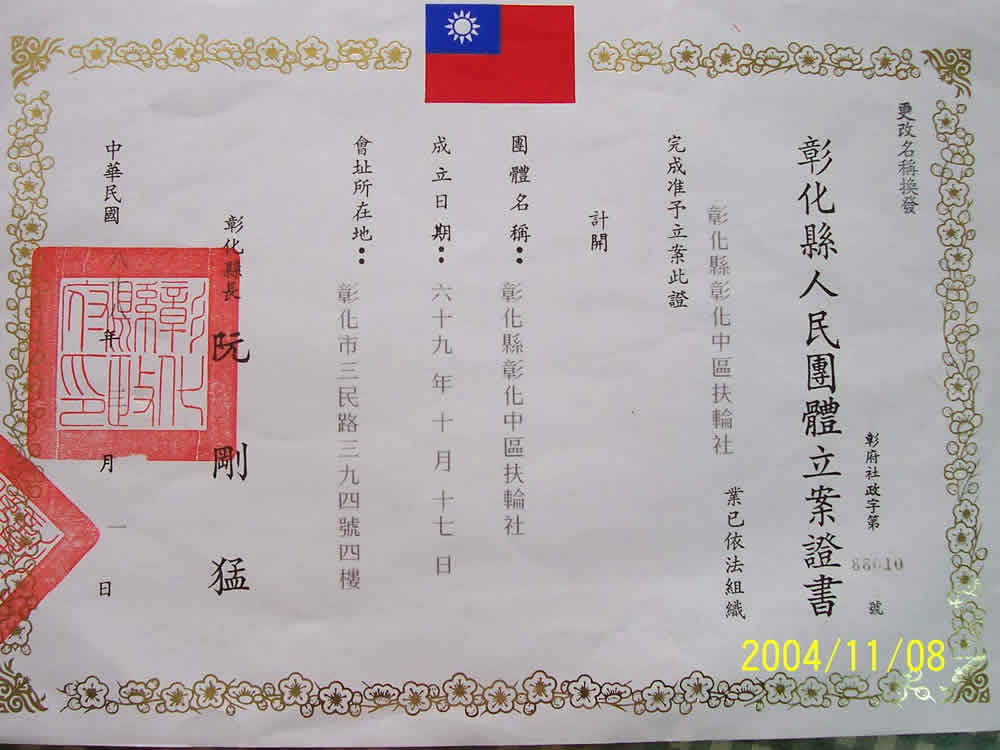 更改名稱換發
彰化縣人民團體立案證書
彰府社政字第 號
彰化縣彰化中區扶輪社 業已依法組織
完成准予立案此證
計開
團體名稱：彰化縣彰化中區扶輪社
成立日期：六十九年十月十七日
會址所在地：彰化市三民路三九四號四樓
彰化縣長 阮剛猛
中華民國八 年 月一日
彰化縣政府印
2004/11/08